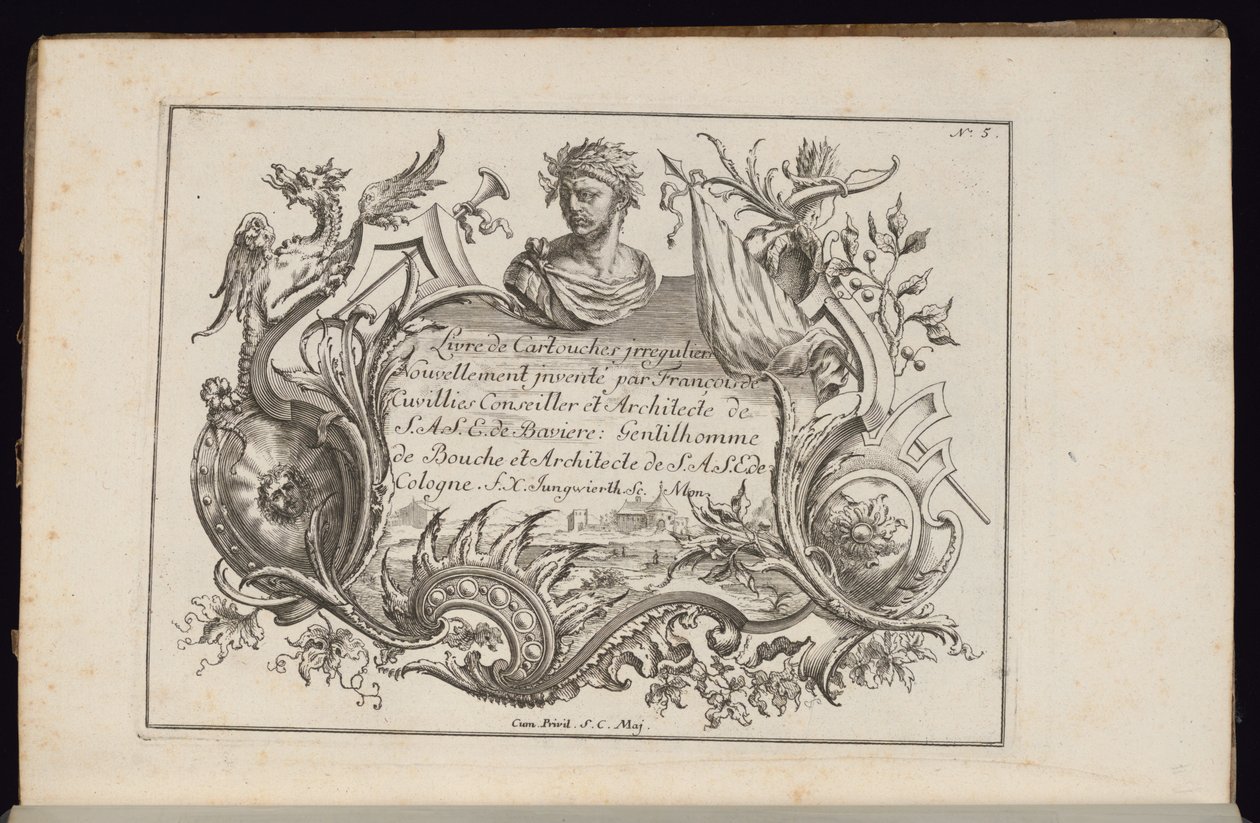 N.o 5.
Livre de Cartouches jrreguliers
Nouvellement jnventé par François de
Cuvillies Conseiller et Architecte de
S. A. S. E. de Baviere: Gentilhomme
de Bouche et Architecte de S. A. S. E. de
Cologne. F. X. Jungwierth. Sc. Mon.
Cum Privil. S. C. Maj.